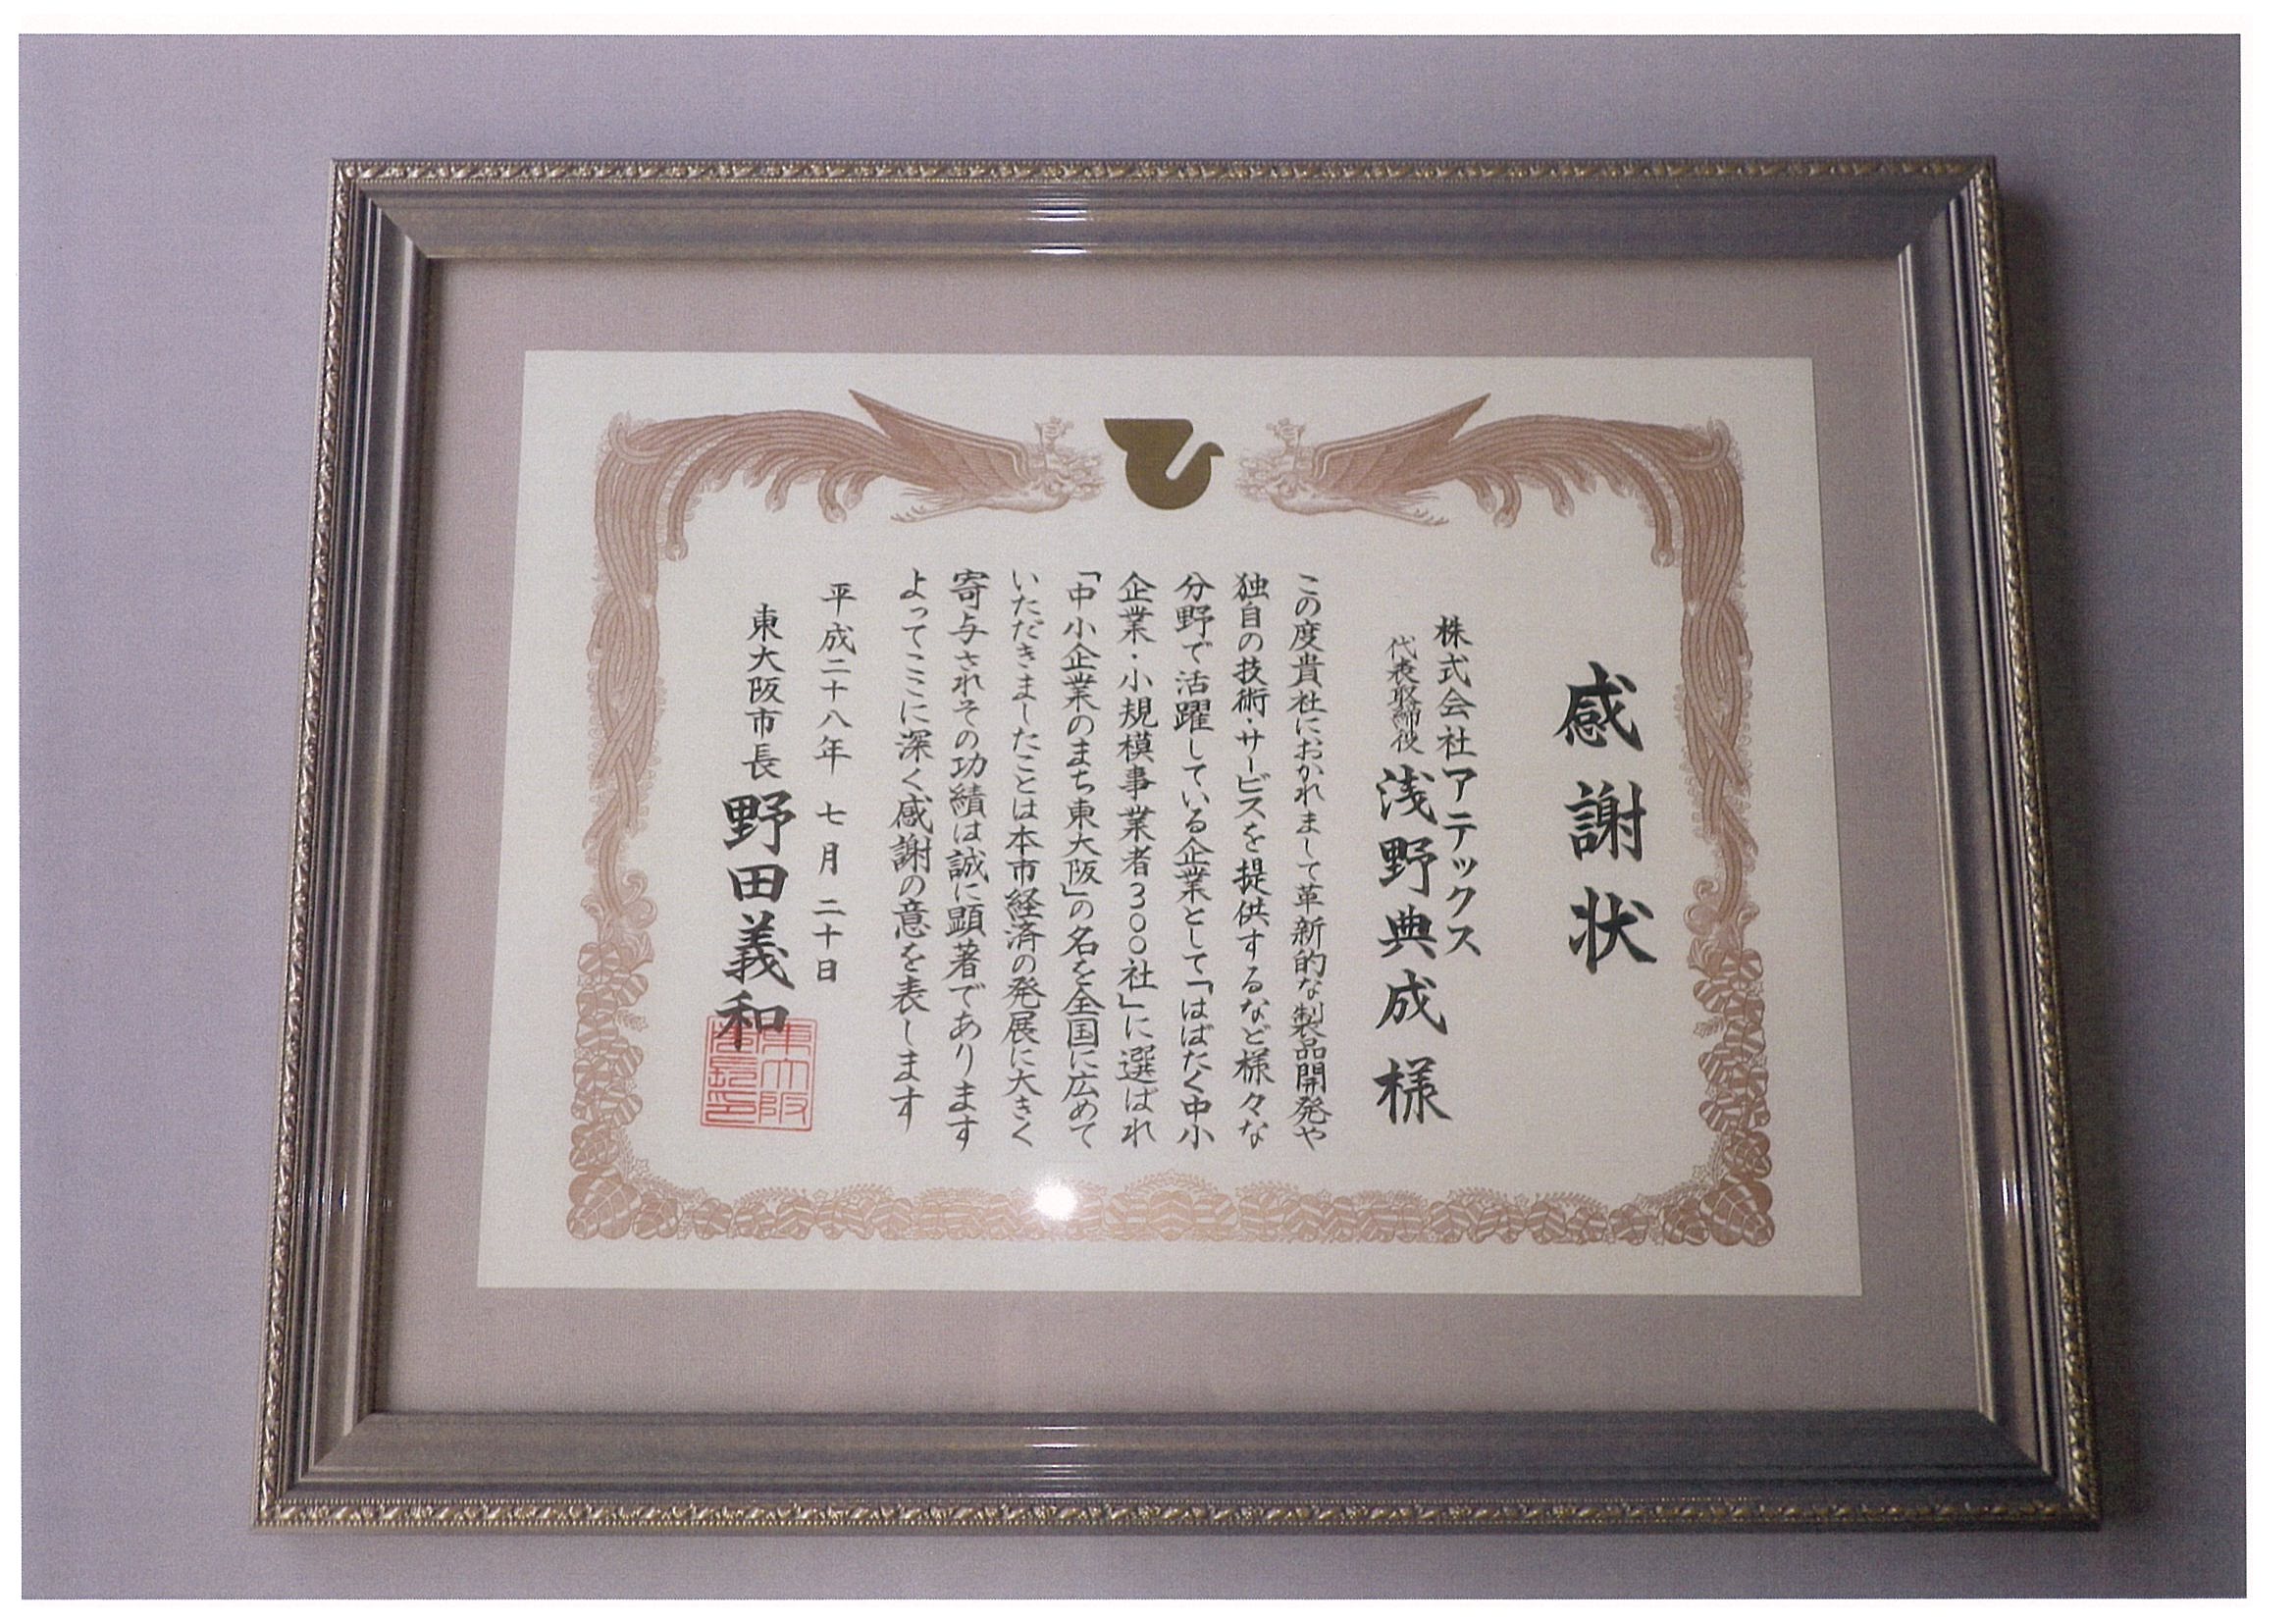 感謝状
株式会社アテックス
代表取締役 浅野典成様
この度貴社におかれまして革新的な製品開発や
独自の技術・サービスを提供するなど様々な
分野で活躍している企業として「はばたく中小
企業・小規模事業者300社」に選ばれ
「中小企業のまち東大阪」の名を全国に広めて
いただきましたことは本市経済の発展に大きく
寄与されその功績は誠に顕著であります
よってここに深く感謝の意を表します
平成二十八年 七月 二十日
東大阪市長 野田義和
東大阪
市長印